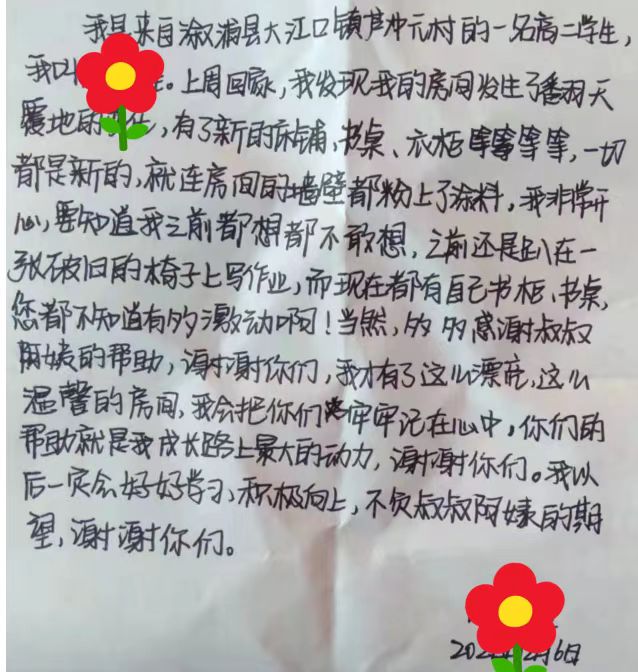 我是来自溆浦县大江口镇芦冲元村的一名高二学生,
我叫 。上周回家,我发现我的房间发生了番羽天
覆地的变化,有了新的床铺、书桌、衣柜等等等等,一切
都是新的,就连房间的墙壁都粉上了涂料,我非常开
心,要知道我之前都想都不敢想,之前还是趴在一
张破旧的椅子上写作业,而现在都有自己书柜、书桌,
您都不知道有多激动啊!当然,多多感谢叔叔
阿姨的帮助,谢谢你们,我才有了这么漂亮,这么
温馨的房间,我会把你们牢牢记在心中,你们的
帮助就是我成长路上最大的动力,谢谢你们。我以
后一定会好好学习、积极向上,不负叔叔阿姨的期
望,谢谢你们。
6日